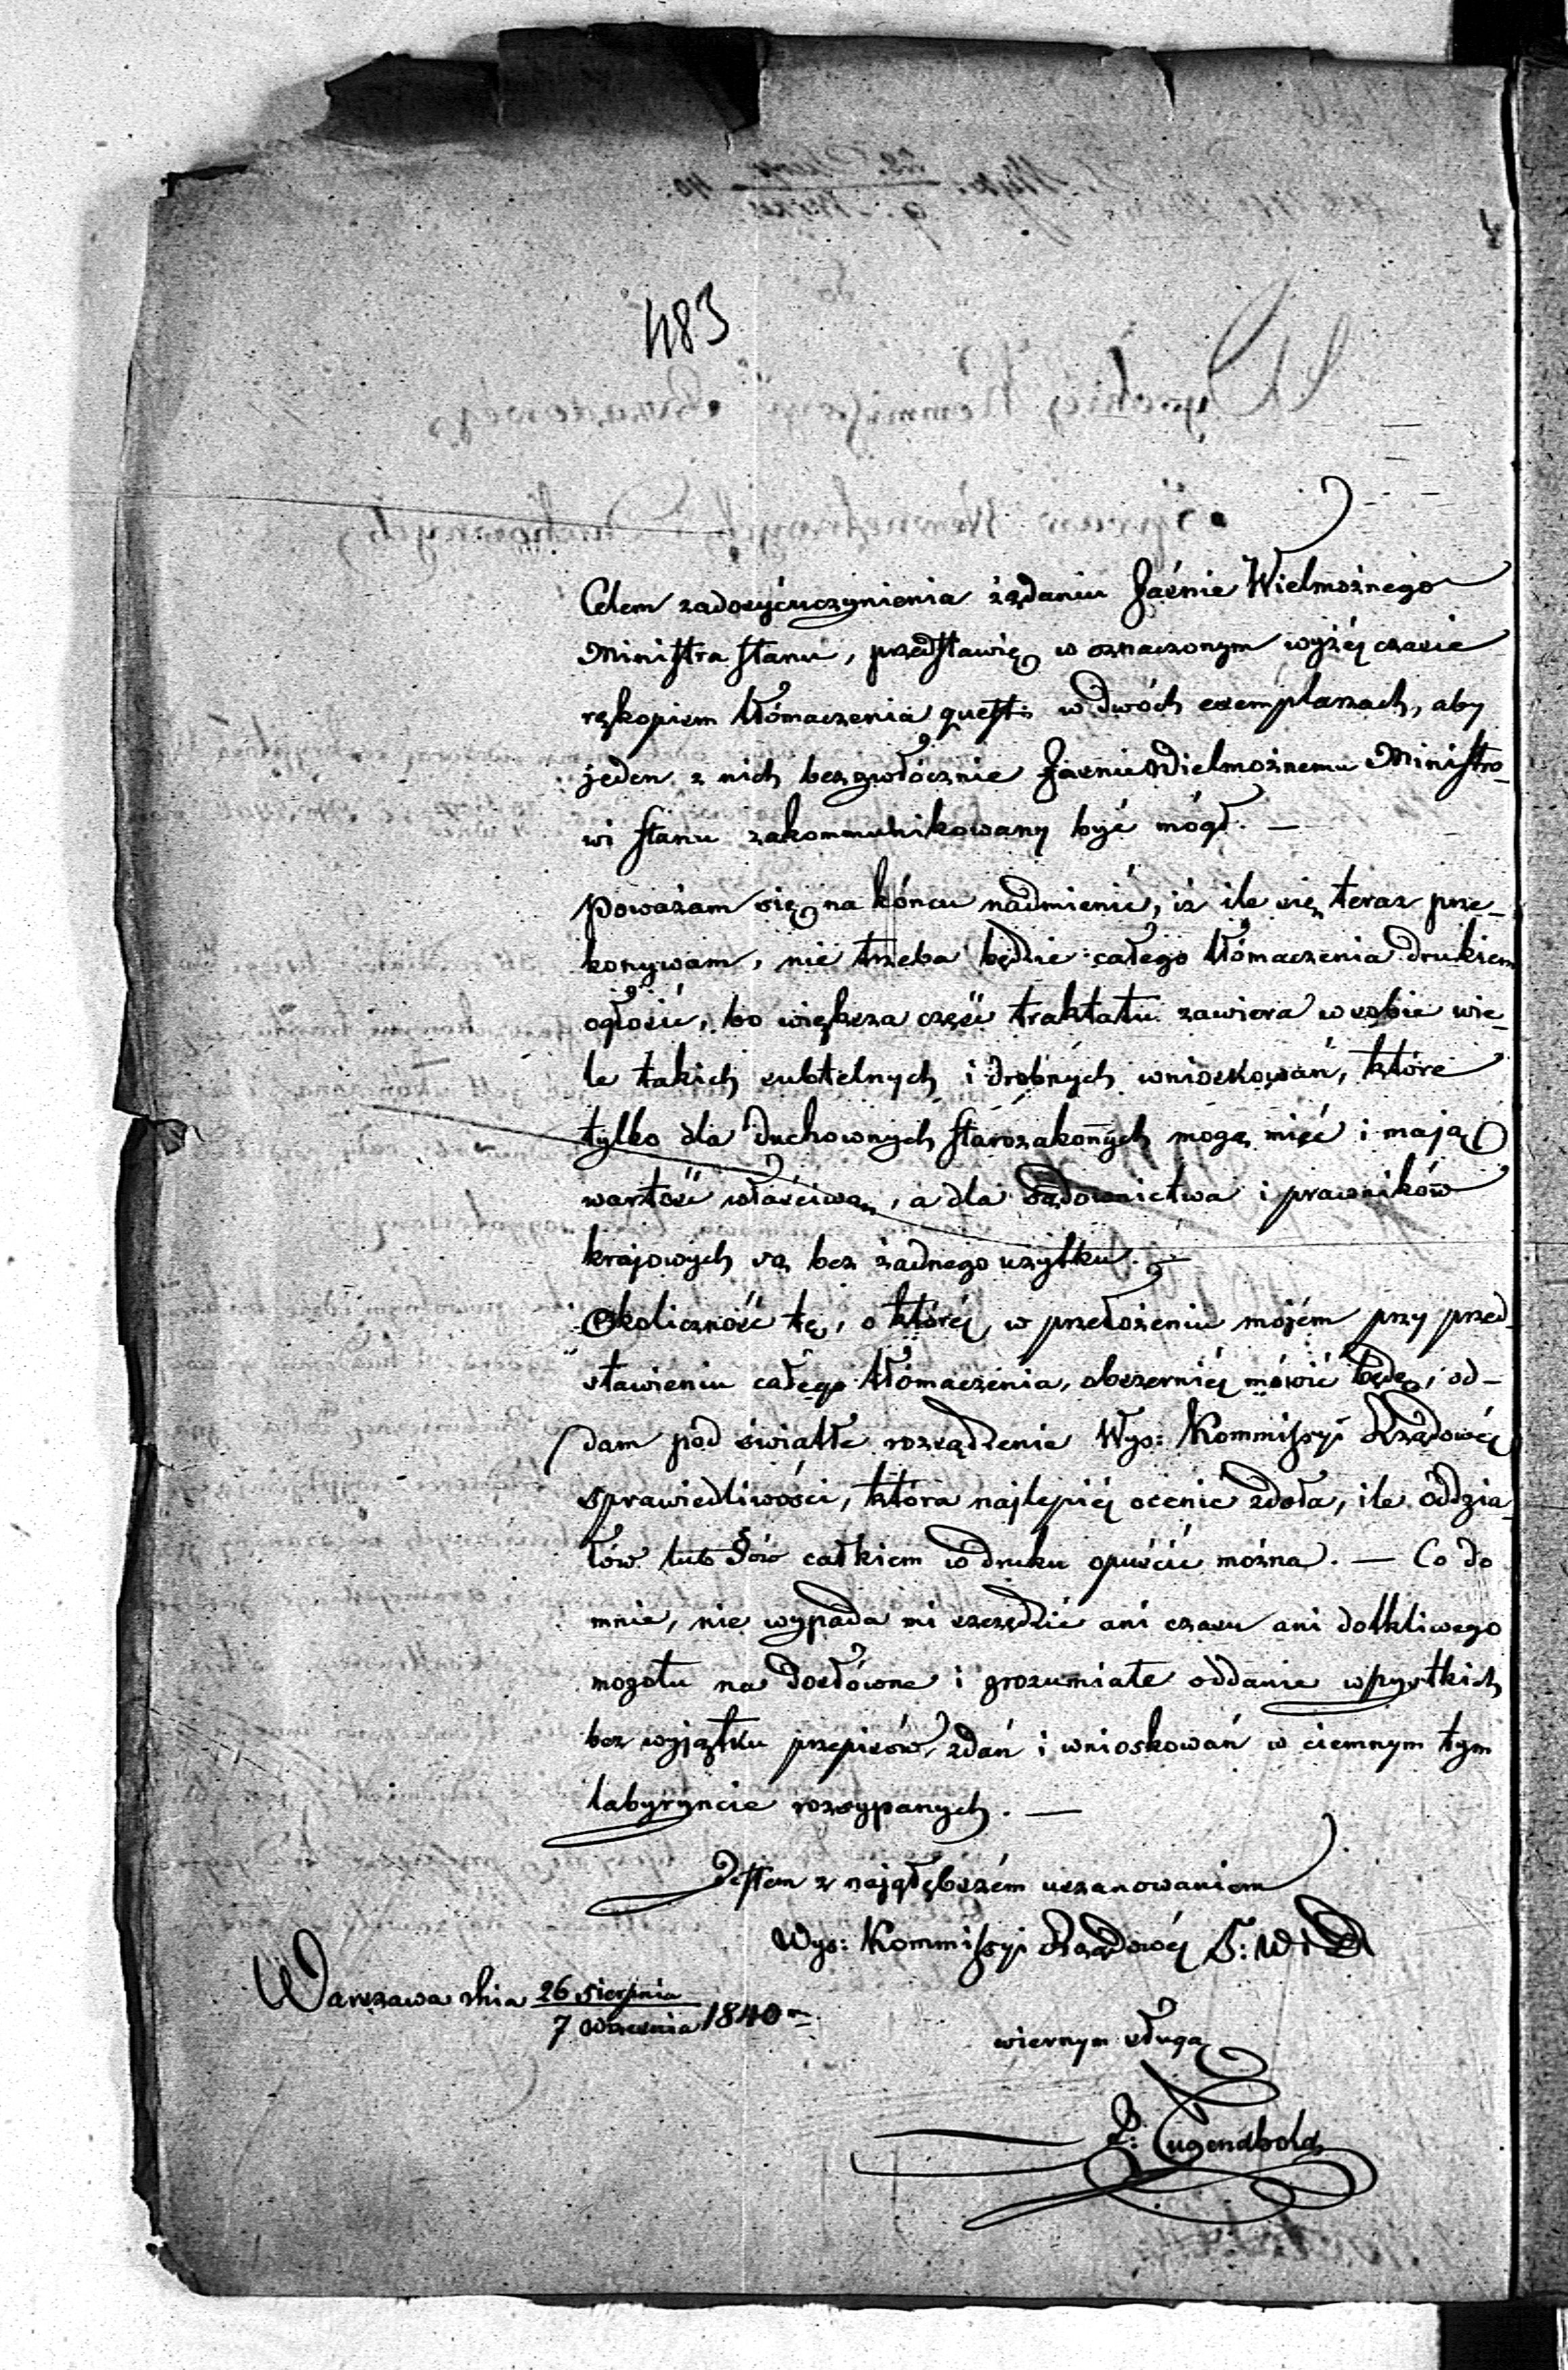 483
Celem zadosyćuczynienia żądaniu Jaśnie Wielmożnego
Ministra stanu, przedstawię w oznaczonym wyżéj czasie
rękopism tłómaczenia quest: w dwóch exemplarzach, aby
jeden z nich bezzwłócznie Jaśnie Wielmożnemu Ministro-
wi stanu zakommunikowany być mógł. —
Poważam się na końcu nadmienić, iż ile się teraz prze-
konywam, nie trzeba będzie całego tłómaczenia drukiem
ogłosić, bo większa część traktatu zawiera w sobie wie-
le takich subtelnych i drobnych wnioskowań, które
tylko dla duchownych starozakonnych mogą mieć i mają
wartość właściwą, a dla sądownictwa i prawników
krajowych są bez żadnego użytku. —
Okoliczność tę, o któréj w przełożeniu mojém przy przed-
stawieniu całego tłómaczenia, obszerniéj mówić będę, od-
dam pod światłe rozsądzenie Wys: Kommissyi Rządowéj
sprawiedliwości, która najlepiéj ocenić zdoła, ile oddzia-
łów lub §ów całkiem w druku opuścić można. — Co do
mnie, nie wypada mi szczędzić ani czasu ani dotkliwego
mozołu na dosłówne i zrozumiałe oddanie wszystkich
bez wyjątku przepisów, zdań i wnioskowań w ciemnym tym
labyryncie rozsypanych. —
Jestem z najgłębszém uszanowaniem
Wys: Kommissyi Rządowéj S: W i D
Warszawa dnia 26 Sierpnia
7 Września 1840 r.
wiernym sługą
J: Tugendhold